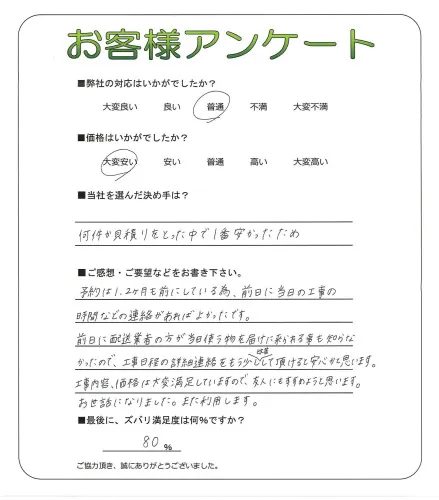 お客様アンケート
■弊社の対応はいかがでしたか?
大変良い 良い 普通 不満 大変不満
■価格はいかがでしたか?
大変安い 安い 普通 高い 大変高い
■当社を選んだ決め手は?
何件か見積りをとった中で1番安かったため
■ご感想・ご要望などをお書き下さい。
予約は1.2ヶ月も前にしている為、前日に当日の工事の
時間などの連絡があればよかったです。
前日に配送業者の方が当日使う物を届けに来られる事も知らな
かったので、工事日程の詳細連絡をもう少し改善して頂けると安心かと思います。
工事内容、価格は大変満足していますので、友人にもすすめようと思います。
お世話になりました。また利用します。
■最後に、ズバリ満足度は何%ですか?
80 %
ご協力頂き、誠にありがとうございました。